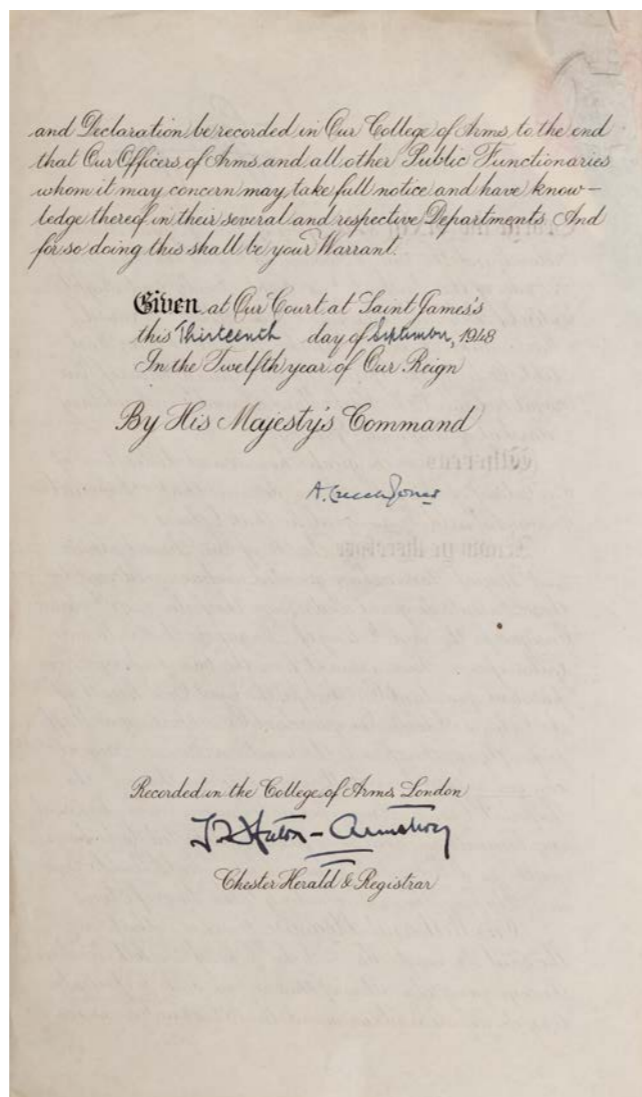 and Declaration be recorded in Our College of Arms, to the end
that Our Officers of Arms and all other Public Functionaries
whom it may concern may take full notice and have know-
ledge thereof in their several and respective Departments. And
for so doing this shall be your Warrant.
Given at Our Court at Saint James's
this Thirteenth day of September, 1948
In the Twelfth year of Our Reign
By His Majesty's Command
A. Creech Jones
Recorded in the College of Arms London
Heaton-Armstrong
Chester Herald & Registrar